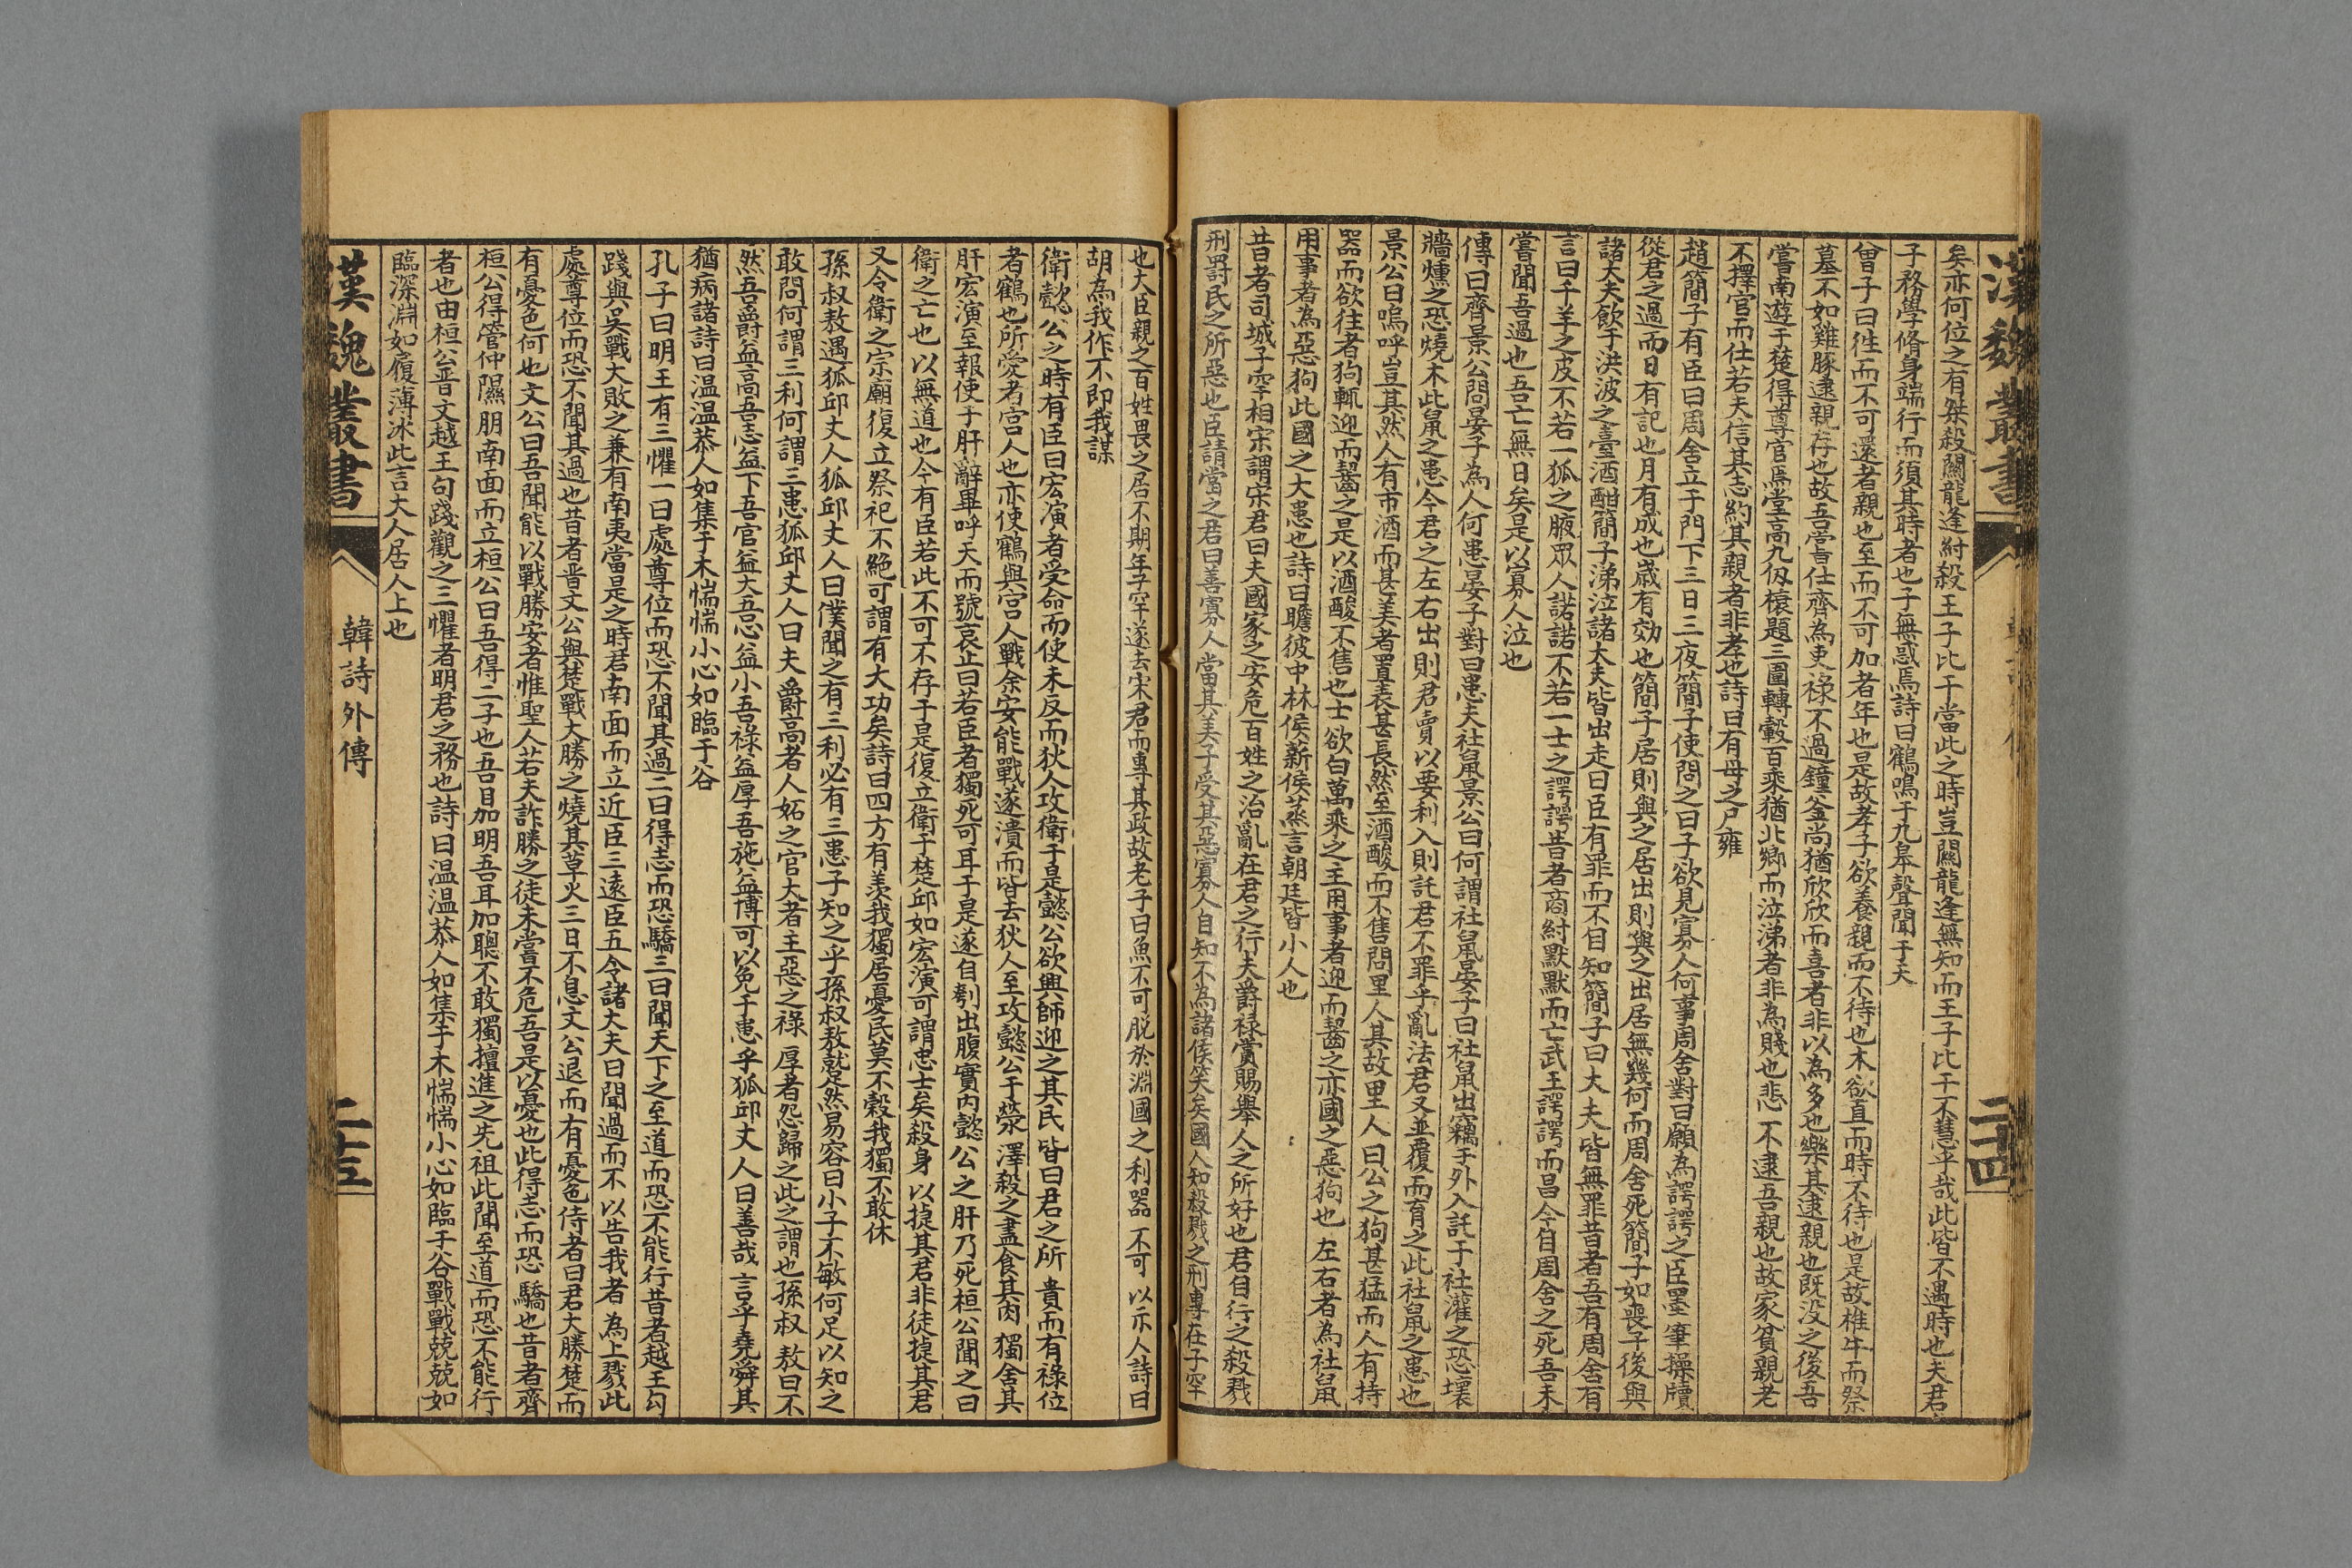 漢魏叢書
二十四
矣亦何位之有桀殺關龍逢紂殺王子比干當此之時豈關龍逢無知而王子比干不慧乎哉此皆不遇時也夫君
子務學脩身端行而須其時者也子無惑焉詩曰鶴鳴于九皋聲聞于天
曾子曰徃而不可還者親也至而不可加者年也是故孝子欲養親而不待也木欲直而時不待也是故椎牛而祭
墓不如雞豚逮親存也故吾嘗仕齊為吏祿不過鐘釜尚猶欣欣而喜者非以為多也樂其逮親也既没之後吾
嘗南遊于楚得尊官焉堂高九仭榱題三圍轉轂百乘猶北鄉而泣涕者非為賤也悲不逮吾親也故家貧親老
不擇官而仕若夫信其志約其親者非孝也詩曰有母之尸雍
趙簡子有臣曰周舍立于門下三日三夜簡子使問之曰子欲見寡人何事周舍對曰願為諤諤之臣墨筆操牘
從君之過而日有記也月有成也歲有効也簡子居則與之居出則與之出居無幾何而周舍死簡子如喪子後與
諸大夫飲于洪波之臺酒酣簡子涕泣諸大夫皆出走曰臣有罪而不自知簡子曰大夫皆無罪昔者吾有周舍有
言曰千羊之皮不若一狐之腋眾人諾諾不若一士之諤諤昔者商紂默默而亡武王諤諤而昌今自周舍之死吾未
嘗聞吾過也吾亡無日矣是以寡人泣也
傳曰齊景公問晏子為人何患晏子對曰患夫社鼠景公曰何謂社鼠晏子曰社鼠出竊于外入託于社灌之恐壞
牆燻之恐燒木此鼠之患今君之左右出則君賣以要利入則託君不罪乎亂法君又並覆而育之此社鼠之患也
景公曰嗚呼豈其然人有市酒而甚美者置表甚長然至酒酸而不售問里人其故里人曰公之狗甚猛而人有持
器而欲往者狗輒迎而齧之是以酒酸不售也士欲白萬乘之主用事者迎而齧之亦國之惡狗也左右者為社鼠
用事者為惡狗此國之大患也詩曰瞻彼中林侯薪侯蒸言朝廷皆小人也
昔者司城子罕相宋謂宋君曰夫國家之安危百姓之治亂在君之行夫爵祿賞賜舉人之所好也君自行之殺戮
刑罰民之所惡也臣請當之君曰善寡人當其美子受其惡寡人自知不為諸侯笑矣國人知殺戮之刑專在子罕
也大臣親之百姓畏之居不期年子罕遂去宋君而專其政故老子曰魚不可脫於淵國之利器不可以示人詩曰
胡為我作不即我謀
衛懿公之時有臣曰宏演者受命而使未反而狄人攻衛于是懿公欲興師迎之其民皆曰君之所貴而有祿位
者鶴也所愛者宮人也亦使鶴與宮人戰余安能戰遂潰而皆去狄人至攻懿公于滎澤殺之盡食其肉獨舍其
肝宏演至報使于肝辭畢呼天而號哀止曰若臣者獨死可耳于是遂自刳出腹實內懿公之肝乃死桓公聞之曰
衛之亡也以無道也今有臣若此不可不存于是復立衛于楚邱如宏演可謂忠士矣殺身以捷其君非徒捷其君
又令衛之宗廟復立祭祀不絕可謂有大功矣詩曰四方有羨我獨居憂民莫不穀我獨不敢休
孫叔敖遇狐邱丈人狐邱丈人曰僕聞之有三利必有三患子知之乎孫叔敖蹵然易容曰小子不敏何足以知之
敢問何謂三利何謂三患狐邱丈人曰夫爵高者人妬之官大者主惡之祿厚者怨歸之此之謂也孫叔敖曰不
然吾爵益高吾志益下吾官益大吾心益小吾祿益厚吾施益博可以免于患乎狐邱丈人曰善哉言乎堯舜其
猶病諸詩曰温温恭人如集于木惴惴小心如臨于谷
孔子曰明王有三懼一曰處尊位而恐不聞其過二曰得志而恐驕三曰聞天下之至道而恐不能行昔者越王勾
踐與吳戰大敗之兼有南夷當是之時君南面而立近臣三遠臣五令諸大夫曰聞過而不以告我者為上戮此
處尊位而恐不聞其過也昔者晉文公與楚戰大勝之燒其草火三日不息文公退而有憂色侍者曰君大勝楚而
有憂色何也文公曰吾聞能以戰勝安者惟聖人若夫詐勝之徒未嘗不危吾是以憂也此得志而恐驕也昔者齊
桓公得管仲隰朋南面而立桓公曰吾得二子也吾目加明吾耳加聰不敢獨擅進之先祖此聞至道而恐不能行
者也由桓公晉文越王句踐觀之三懼者明君之務也詩曰温温恭人如集于木惴惴小心如臨于谷戰戰兢兢如
臨深淵如履薄冰此言大人居人上也
漢魏叢書
韓詩外傳
二十五